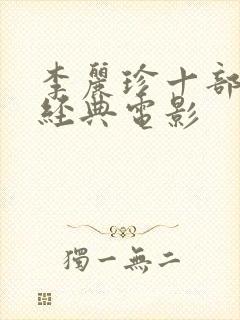 李麗珍十部
經典電影
獨一無二